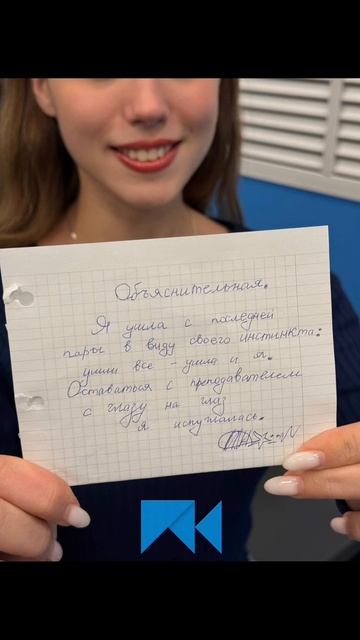 Объяснительная.
Я ушла с последней
пары в виду своего инстинкта:
ушли все – ушла и я.
Оставаться с преподавателем
с глазу на глаз
я испугалась.